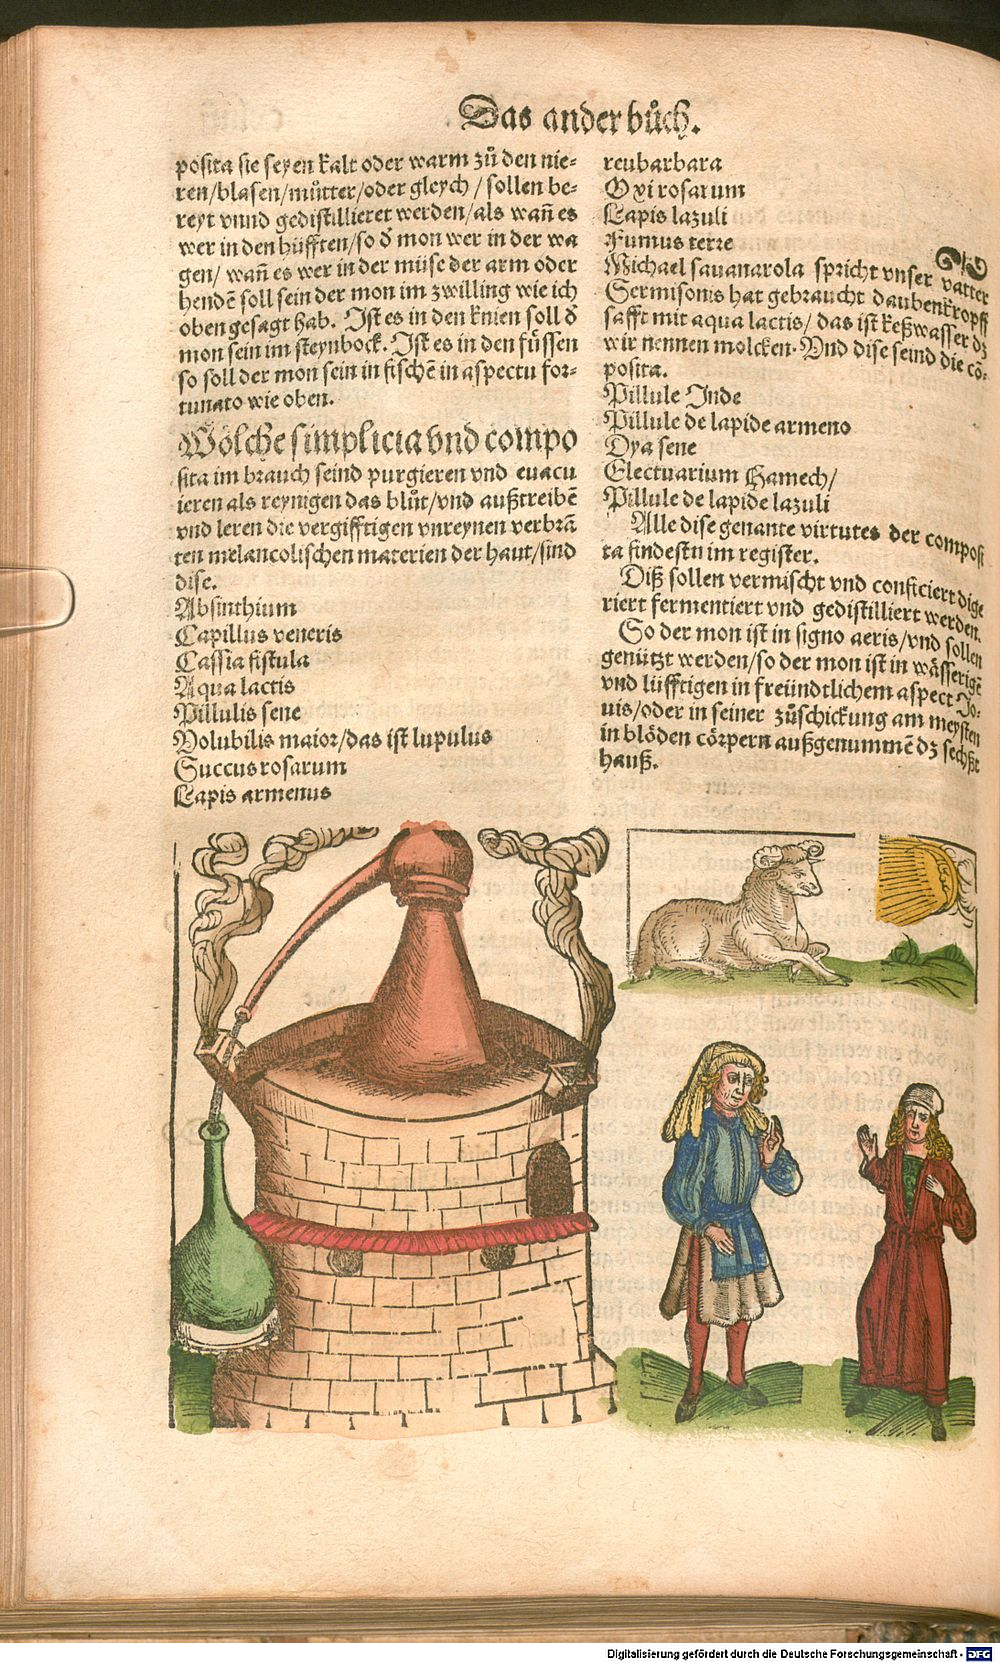 Das ander bůch.
posita sie seyen kalt oder warm zů den nie⸗
ren/blasen/můtter/oder gleych / sollen be⸗
reyt vnnd gedistillieret werden/als wañ es
wer in den hüfften/so d̄ mon wer in der wa
gen/ wañ es wer in der müse der arm oder
hendē soll sein der mon im zwilling wie ich
oben gesagt hab. Ist es in den knien soll d̄
mon sein im steynbock. Ist es in den füssen
so soll der mon sein in fischē in aspectu for⸗
tunato wie oben.
Wölche simplicia vnd compo
sita im brauch seind purgieren vnd euacu
ieren als reynigen das blůt/vnd außtreibē
vnd leren die vergifftigen vnreynen verbrā
ten melancolischen materien der haut/sind
dise.
Absinthium
Capillus veneris
Cassia fistula
Aqua lactis
Pillulis sene
Volubilis maior/das ist lupulus
Succus rosarum
Lapis armenus
reubarbara
Oxi rosarum
Lapis lazuli
Fumus terre
Michael sauanarola spricht vnser vatter
Sermisonis hat gebraucht daubenkropff
safft mit aqua lactis/ das ist keßwasser dz
wir nennen molcken. Vnd dise seind die cō⸗
posita.
Pillule Inde
Pillule de lapide armeno
Dya sene
Electuarium Hamech/
Pillule de lapide lazuli
Alle dise genante virtutes der composi
ta findestu im register.
Diß sollen vermischt vnd conficiert dige
riert fermentiert vnd gedistilliert werden.
So der mon ist in signo aeris/vnd sollen
genützt werden/so der mon ist in wässerigē
vnd lüfftigen in freündtlichem aspect Jo⸗
uis/oder in seiner zůschickung am meysten
in blöden cörpern außgenummē dz sechßt
hauß.
Digitalisierung gefördert durch die Deutsche Forschungsgemeinschaft - DFG